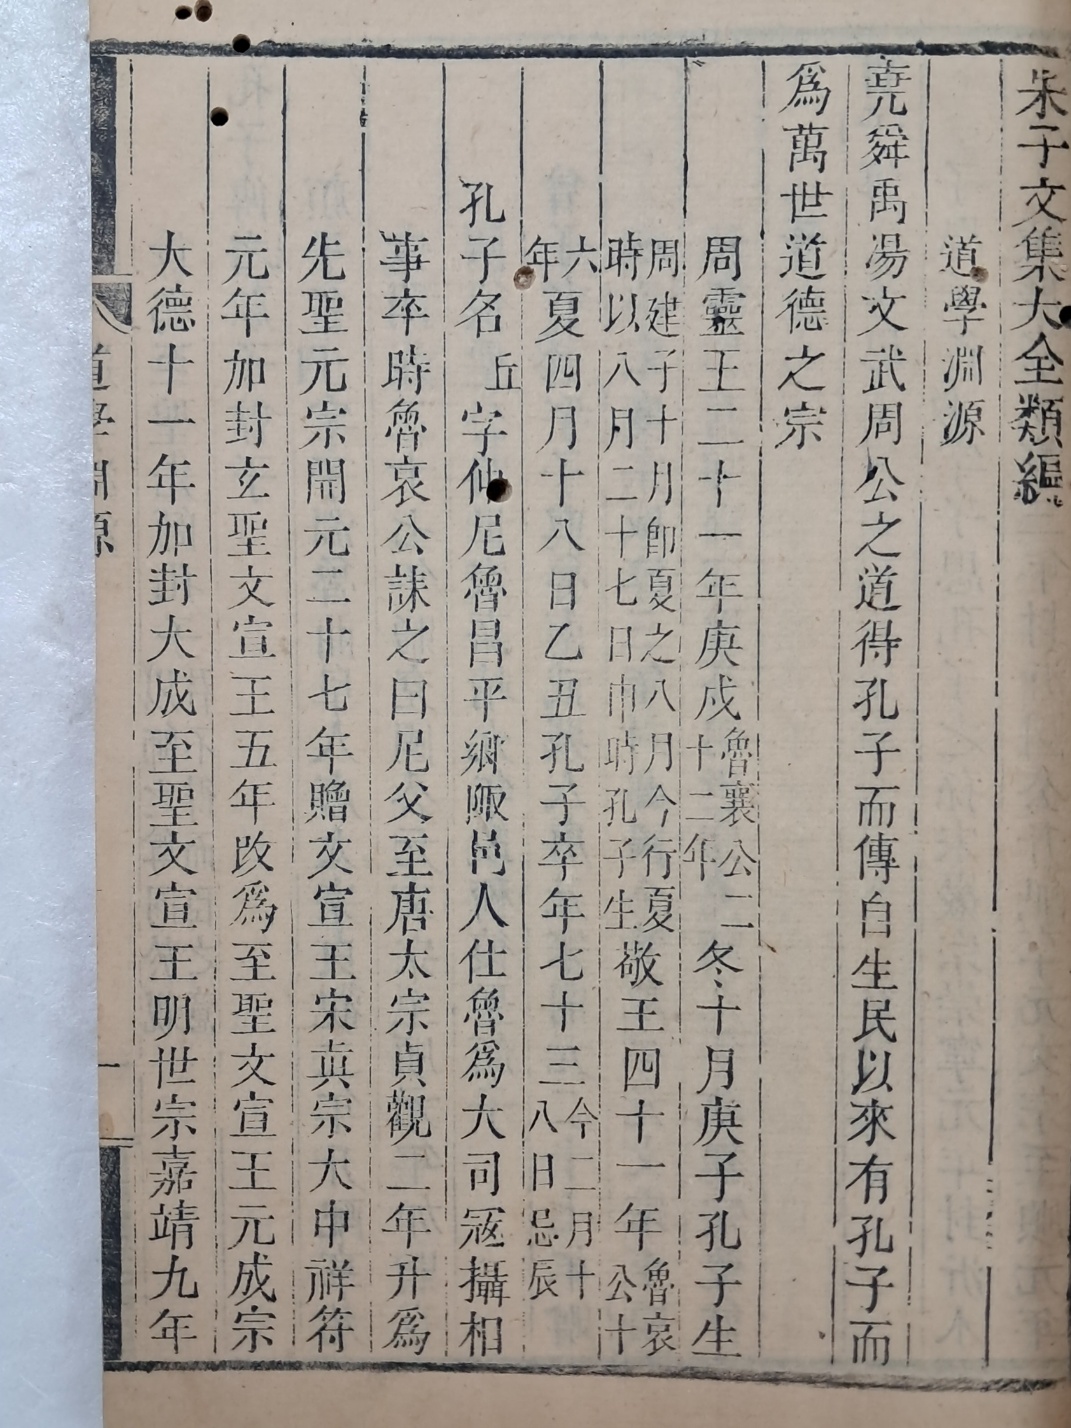 朱子文集大全類編
道學淵源
堯舜禹湯文武周公之道得孔子而傳自生民以來有孔子而
爲萬世道德之宗
周靈王二十一年庚戌魯襄公二十二年冬十月庚子孔子生
周建子十月卽夏之八月今行夏時以八月二十七日巾時孔子生敬王四十一年魯哀公十
六年夏四月十八日乙丑孔子卒年七十三今二月十八日忌辰
孔子名丘字仲尼魯昌平鄉陬邑人仕魯爲大司寇攝相
事卒時魯哀公誄之曰尼父至唐太宗貞觀二年升爲
先聖元宗開元二十七年贈文宣王宋真宗大中祥符
元年加封玄聖文宣王五年改爲至聖文宣王元成宗
大德十一年加封大成至聖文宣王明世宗嘉靖九年
道學淵源
一